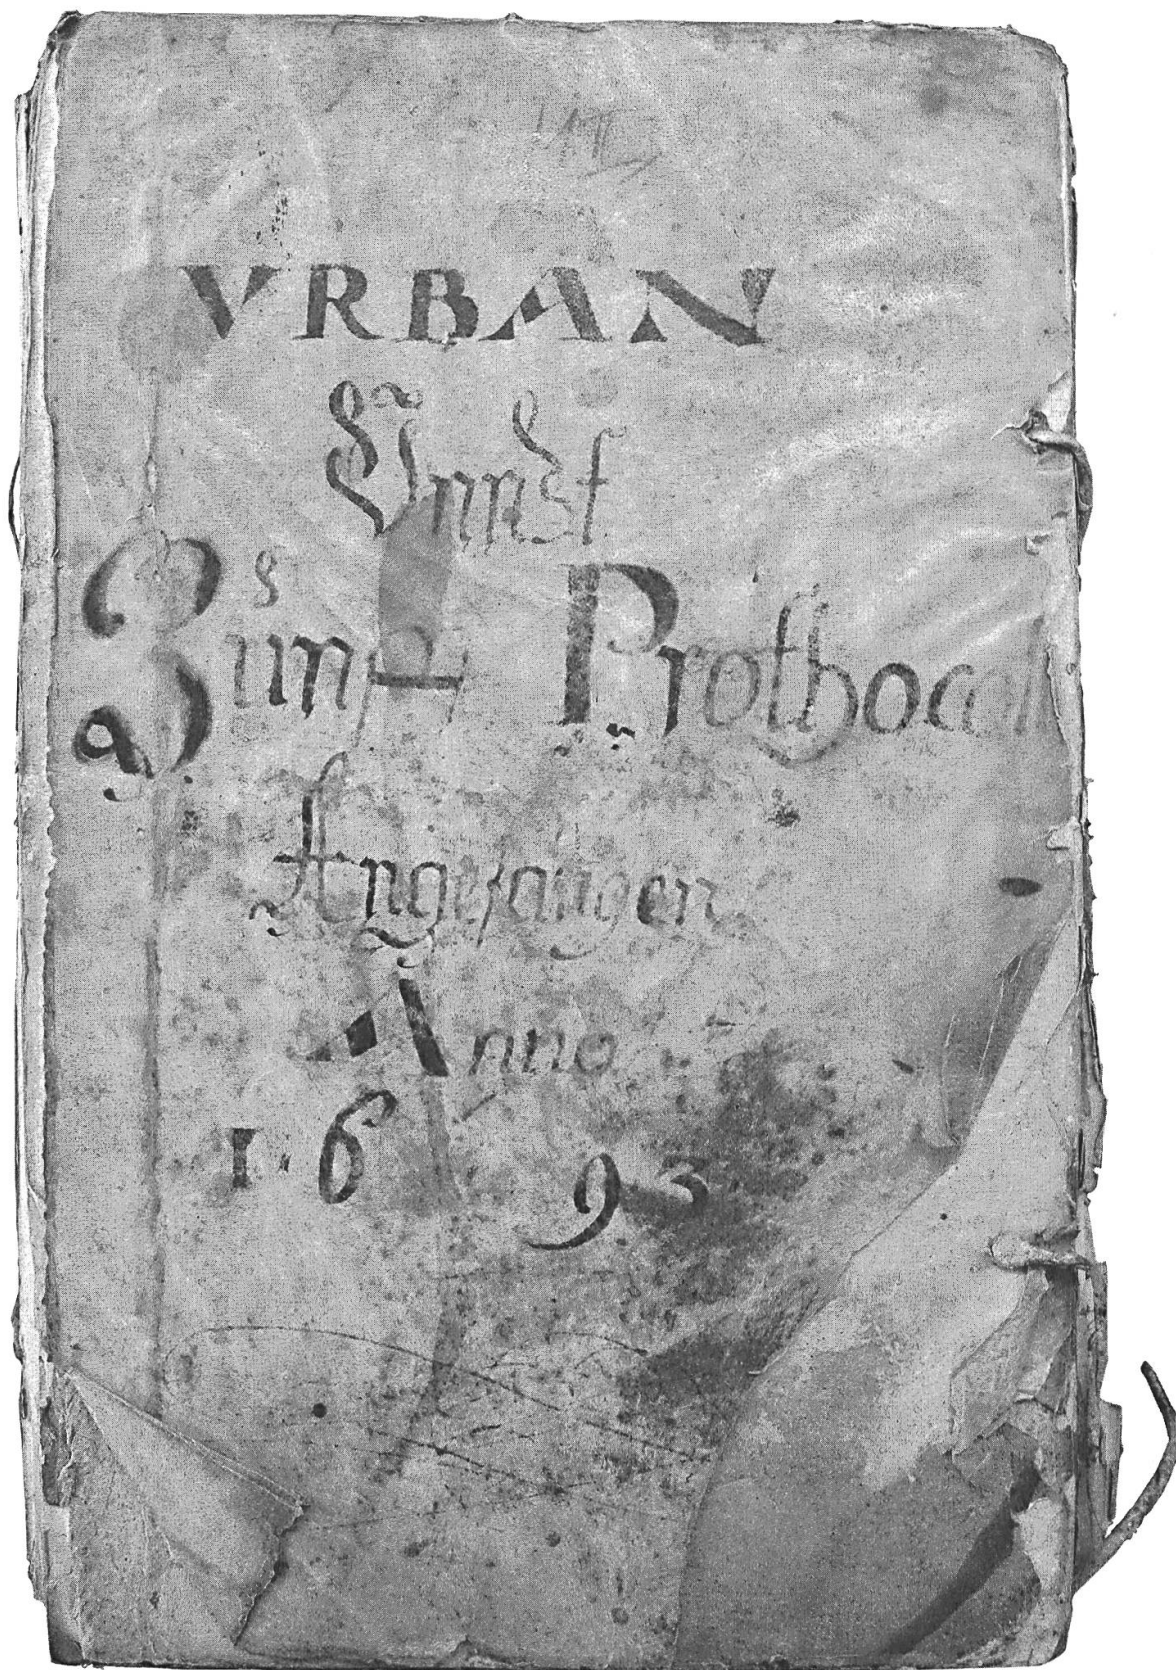 VRBAN
Zunft Prothocoll
Angefangen
Anno
1693